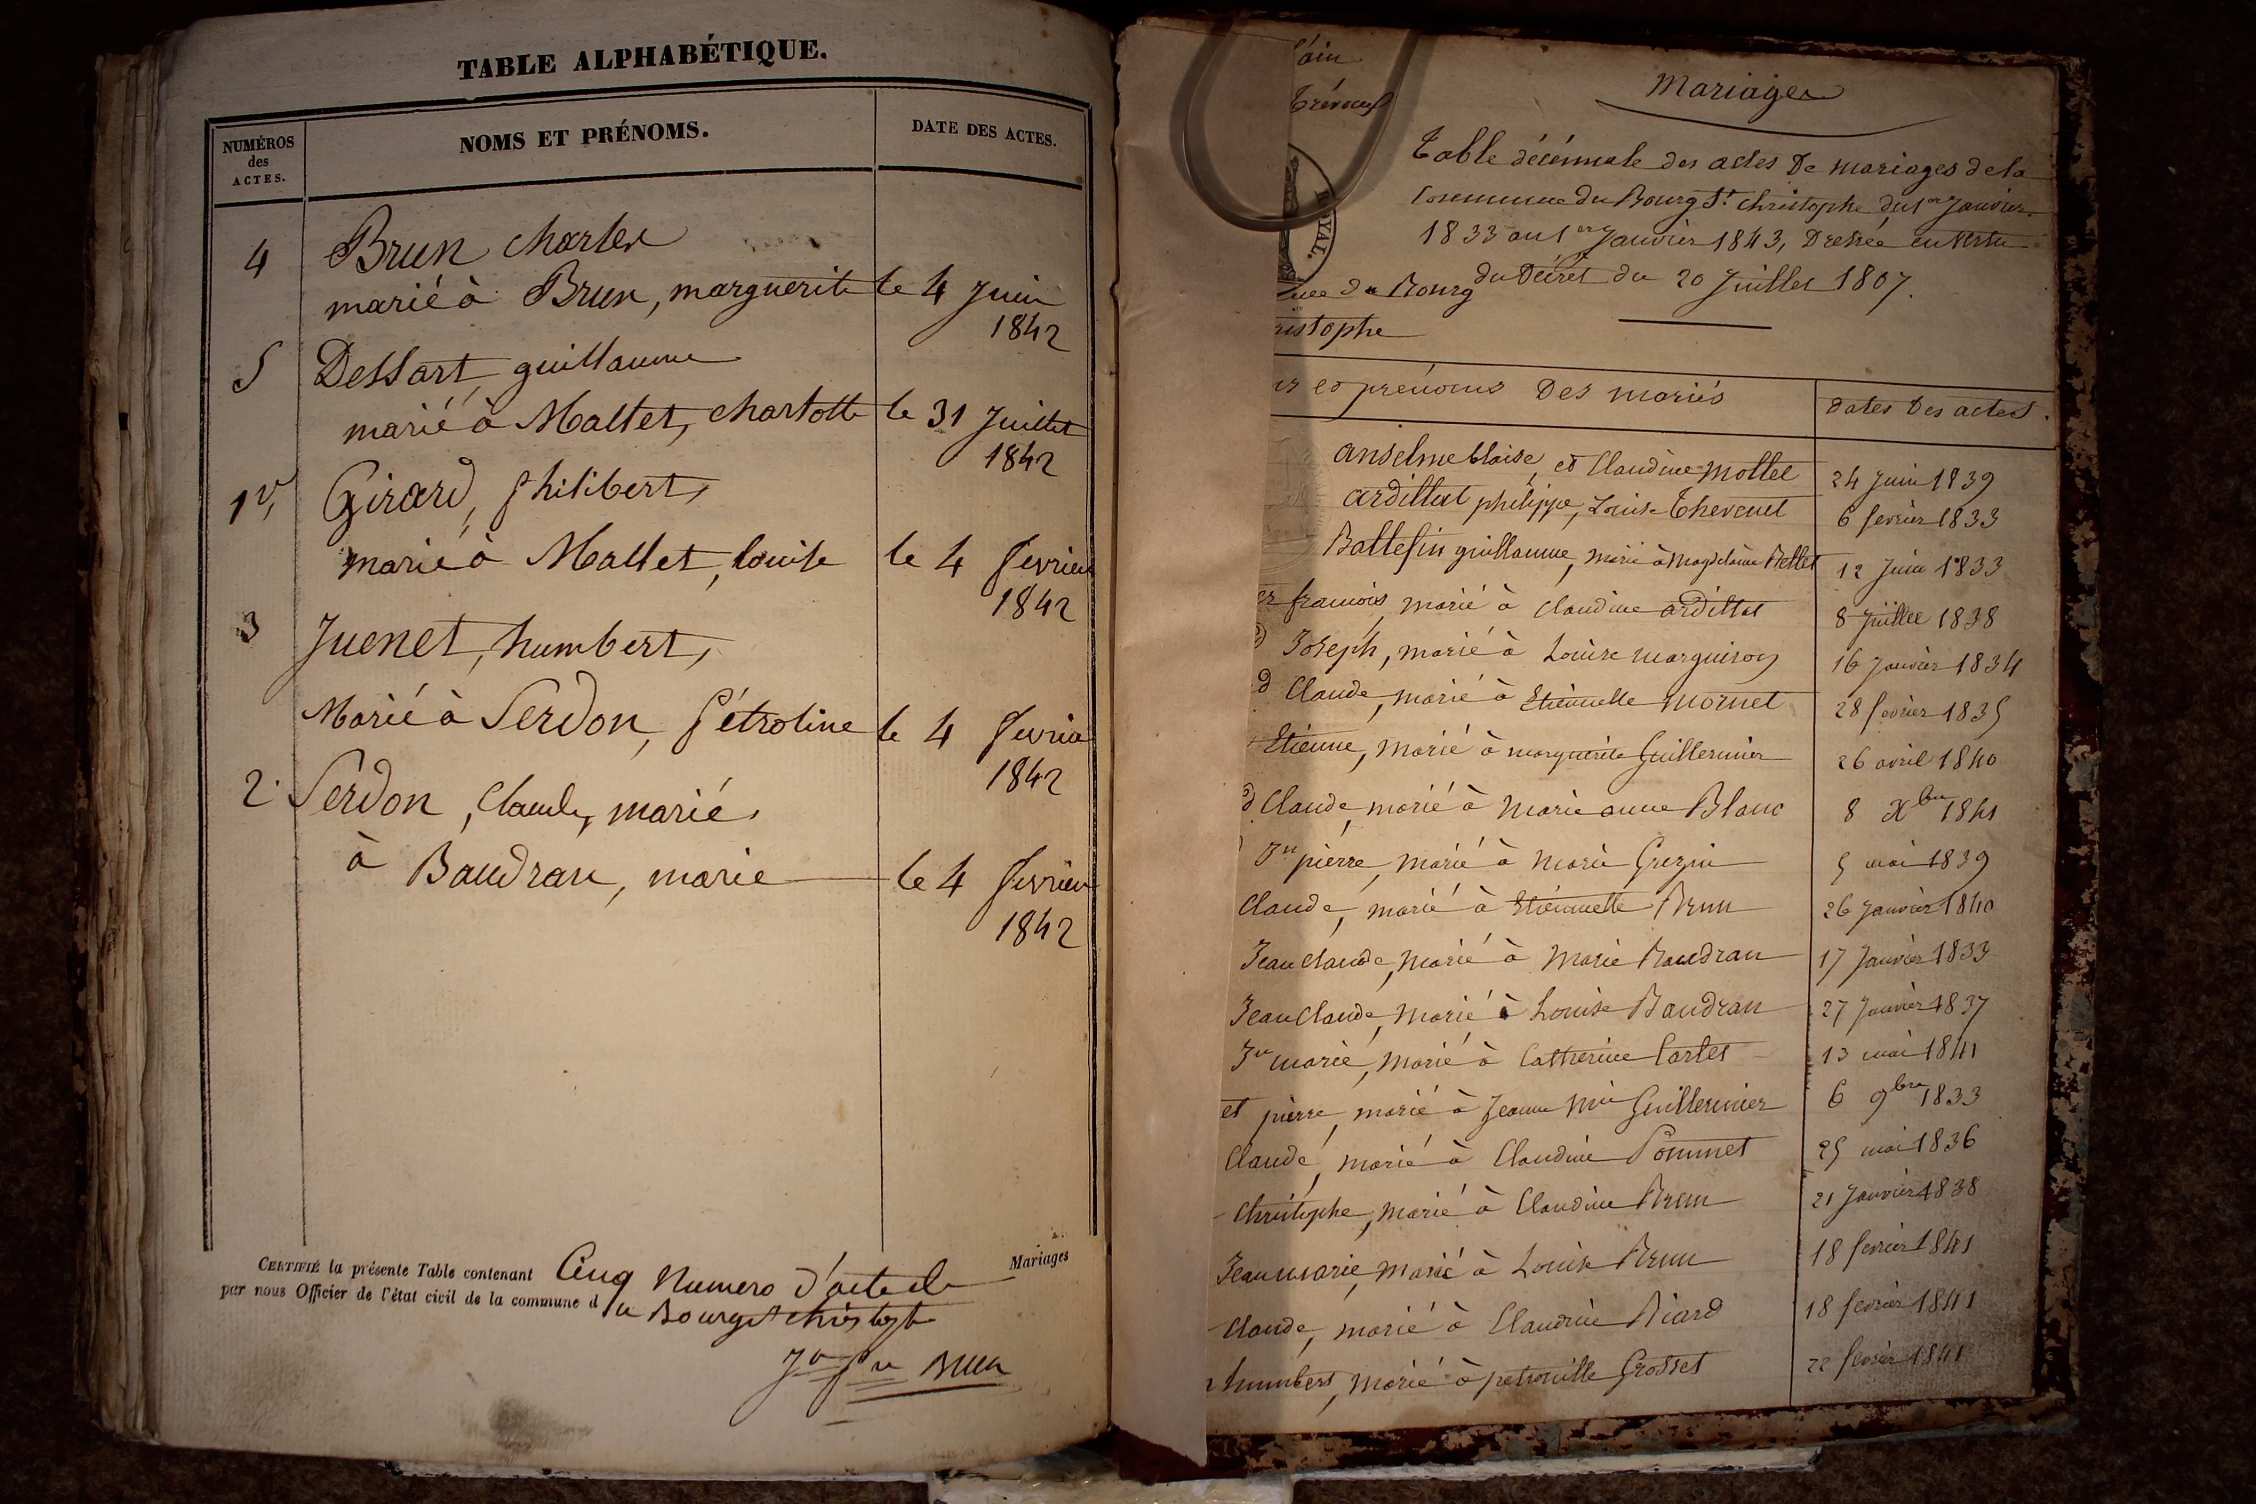 TABLE ALPHABÉTIQUE.
NUMÉROS
des
ACTES.
NOMS ET PRÉNOMS.
DATE DES ACTES.
4 Brun charles
marié à Brun, marguerite le 4 Juin
1842
5 Dessart, guillaume
marié à Mallet, charlotte le 31 Juillet
1842
1er Girard, philibert,
marié à Mallet, louise le 4 fevrier
1842
3 Juenet, humbert,
Marié à Serdon, pétroline le 4 fevrier
1842
2. Serdon, Claude, marié,
à Baudran, marie le 4 fevrier
1842
CERTIFIÉ la présente Table contenant Cinq Numero d'acte de Mariages
par nous Officier de l'état civil de la commune du Bourg St christophe
Brun
ain
Trévoux
ROYAL.
Mariages
Table décénnale des actes De mariages de la
Commune du Bourg St christophe du 1er Janvier
1833 au 1er Janvier 1843, Dressée en vertu
du Décret du 20 Juillet 1807.
du Bourg
ristophe
et prénoms Des mariés
dates des actes.
anselme blaise, et Claudine Mollet 24 Juin 1839
ardillat philippe, Louise Thevenet 6 fevrier 1833
Ballefin guillaume, marié à Magdelaine Bellet 12 Juin 1833
francois, marié à Claudine ardillat 8 Juillet 1838
Joseph, marié à Louise marguiron 16 Janvier 1834
d Claude, marié à Etiennette Mornet 28 fevrier 1835
Etienne, marié à marguerite Guillermier 26 avril 1840
d Claude, marié à Marie anne Blanc 8 Xbre 1841
Jn pierre, marié à Marie Grezin 5 mai 1839
Claude, marié à Etiennette Brun 26 Janvier 1840
Jean Claude, Marié à Marie Baudran 17 Janvier 1833
Jean Claude, Marié à Louise Baudran 27 Janvier 1837
Jn marie, Marié à Catherine Carlet 13 mai 1841
et pierre, marié à Jeanne Mie Guillermier 6 9bre 1833
Claude, marié à Claudine Pommet 25 mai 1836
Christophe, Marié à Claudine Brun 21 Janvier 1838
Jean marie, Marié à Louise Brun 18 fevrier 1841
Claude, marié à Claudine Biard 18 fevrier 1841
humbert, marié à petronille Grosset 22 fevrier 1841